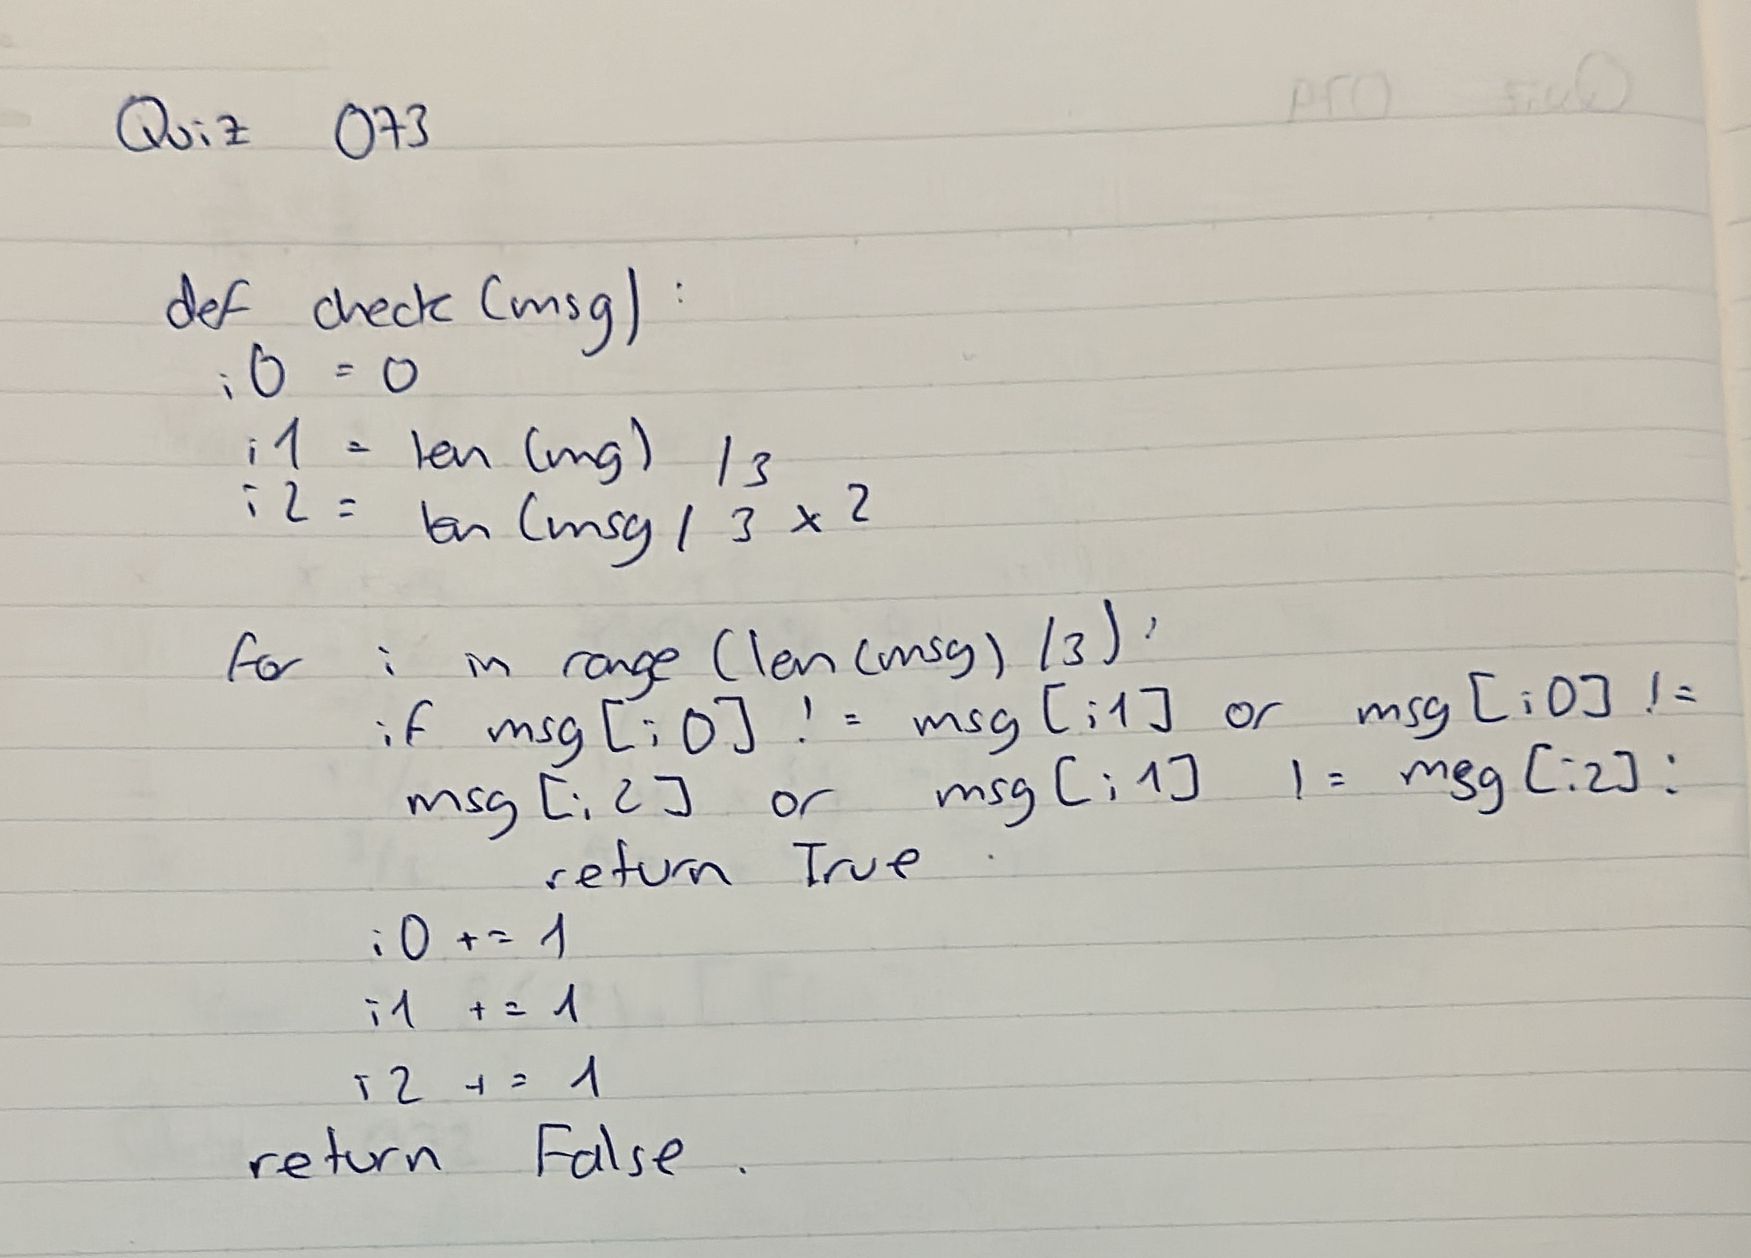 Quiz 073
def check (msg) :
i0 = 0
i1 = len (mg) /3
i2 = len (msg / 3 x 2
for i in range (len (msg) /3) :
if msg [i0] != msg [i1] or msg [i0] !=
msg [i2] or msg [i1] != msg [i2] :
return True
i0 += 1
i1 += 1
i2 += 1
return False .
Quiz 074